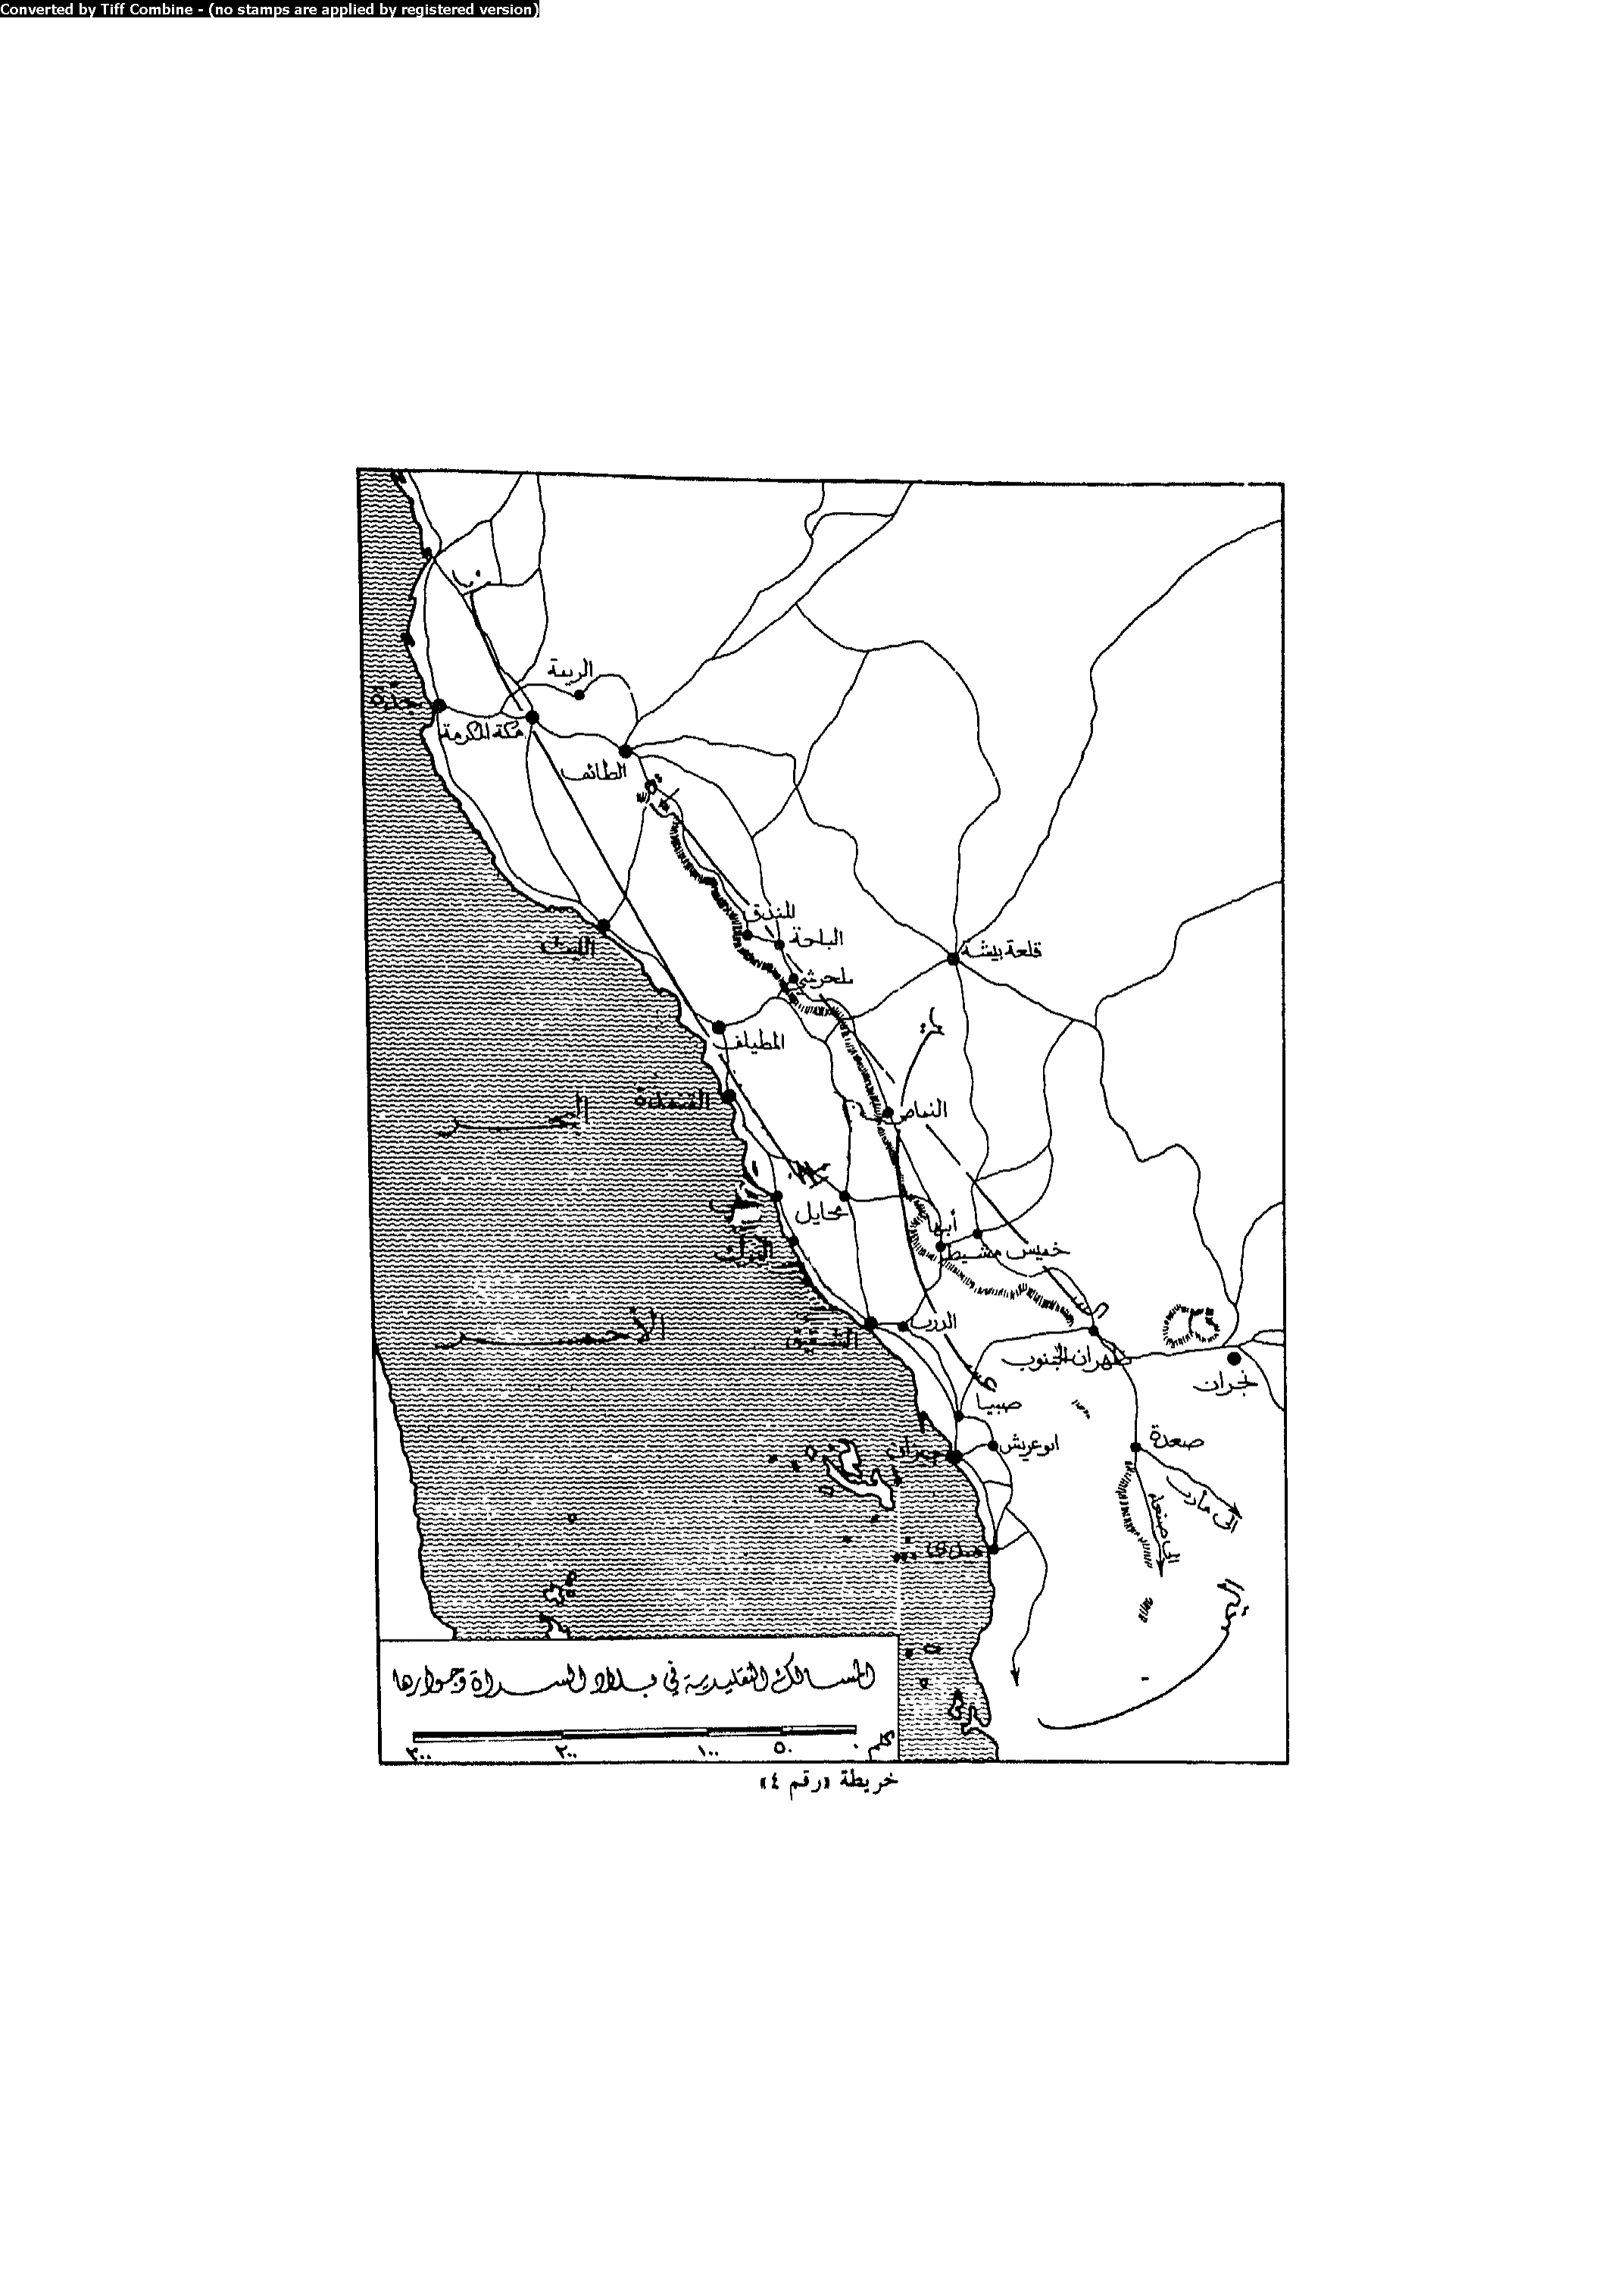 Converted by Tiff Combine - (no stamps are applied by registered version)
جدة
مكة المكرمة
الطائف
المندق
الباحة
بلجرشي
قلعة بيشة
الليث
المظيلف
القنفذة
النماص
البحر
محايل
أبها
خميس مشيط
البرك
الدرب
الشقيق
الأحمر
ظهران الجنوب
نجران
صبيا
ابوعريش
جيزان
صعدة
الى مأرب
الى صنعاء
المسالك التقليدية في بلاد السراة وجوارها
٣٠٠ ٢٠٠ ١٠٠ ٥٠ ٠ كلم
خريطة «رقم ٤»